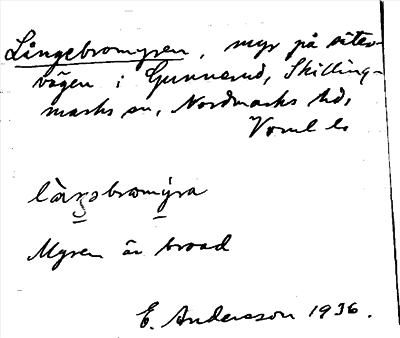 Långebromyren, myr på säter-
vägen i Gunnerud, Skilling-
marks sn, Nordmarks hd,
Vrml l.
Myren är broad
E. Andersson 1936.